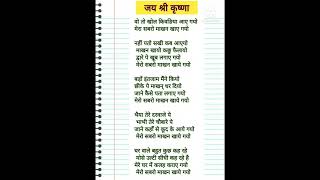 जय श्री कृष्णा
वो तो खोल किवड़िया आए गयो
मेरा सबरो माखन खाए गयो
नहीं पतो सखी कब आएयो
माखन खायो कछु फैलायो
ढूले पे खूब लगाए गयो
मेरो सबरो माखन खाये गयो
बड़ों इंतजाम मैंने कियो
छींके पे माखन् धर दियो
जाने कैसे पता लगाए गयो
मेरो सबरो माखन खाये गयो
मैया तेरे दरवाजे पे
भाभी तेरे चौबारे पे
जाने कहाँ से कूद के आये गयो
मेरो सबरो माखन खाये गयो
घर वाले बहुत कुछ कह रहे
मोसे उल्टी सीधी कह रहे है
मेरे घर में कलह कराए गयो
मेरो सबरो माखन खाये गयो